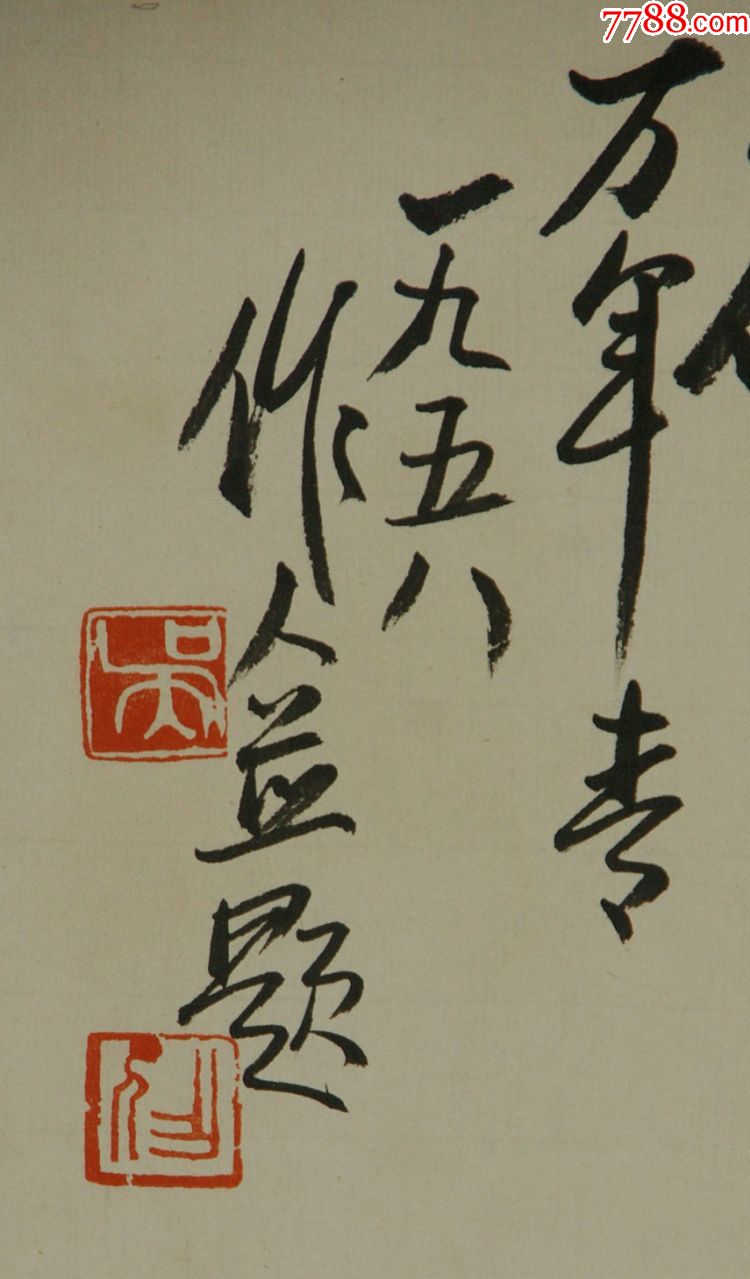 7788.com
万年青
一九五八
作人并题
吴
作人